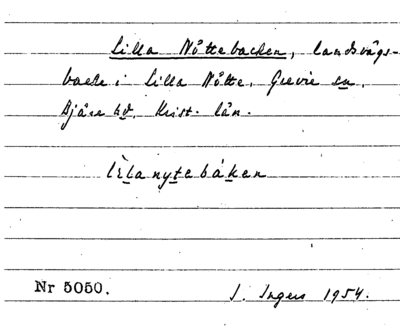 Lilla Nöttebacken, landsvägs-
backe i Lilla Nötte, Grevie sn,
Bjäre hd, Krist. län.
lìlanytebáken
Nr 5050.
I. Ingers 1954.